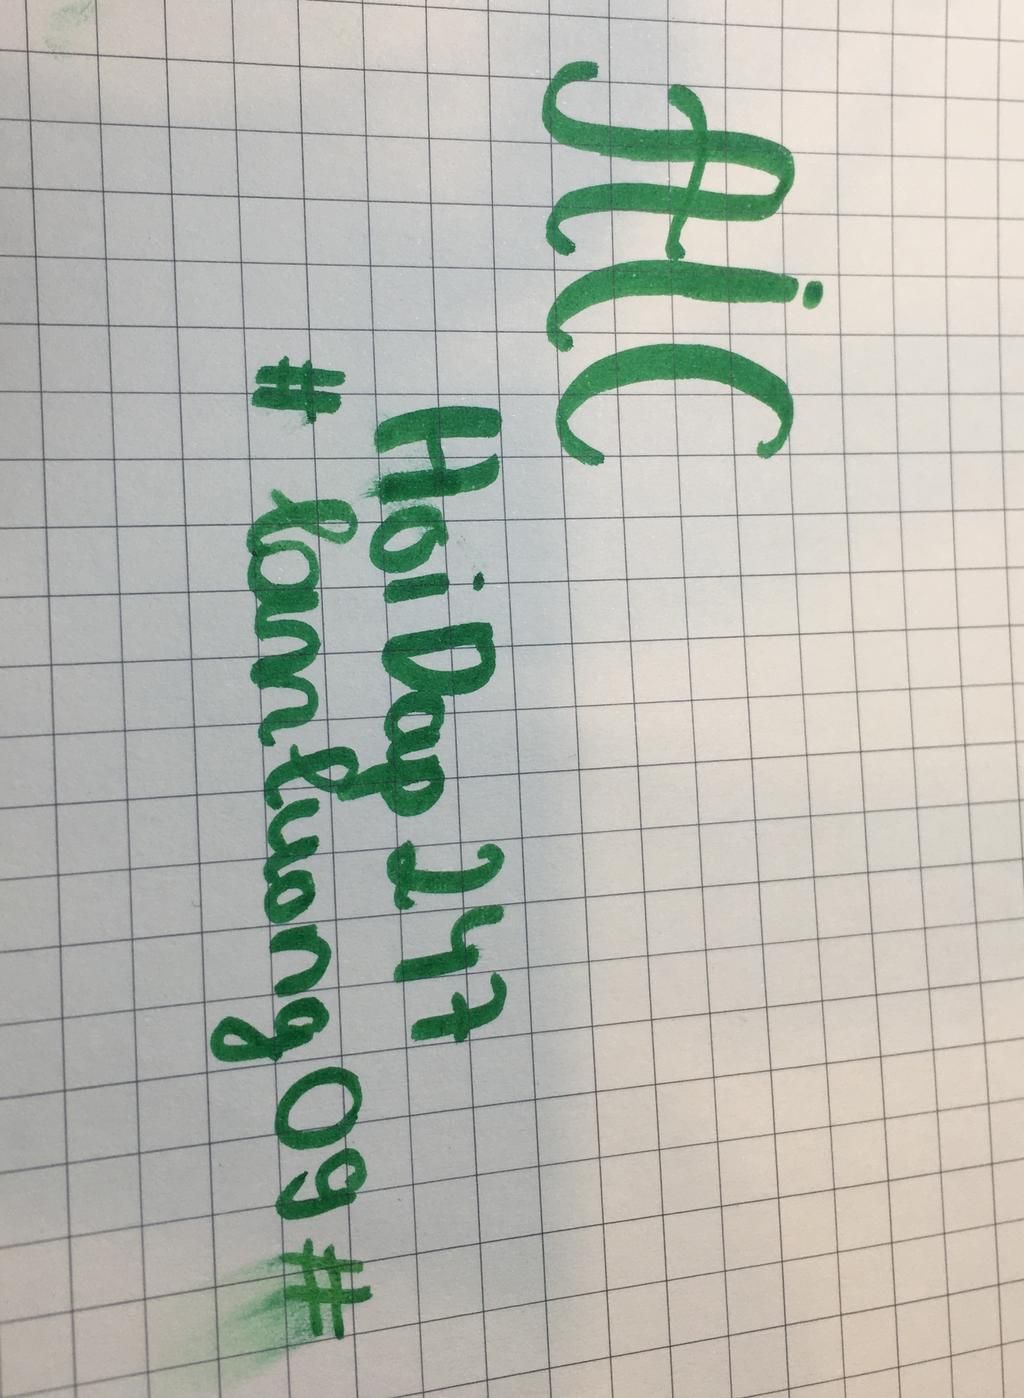 Aic
Hoi Dap 247
# lamluong09 #